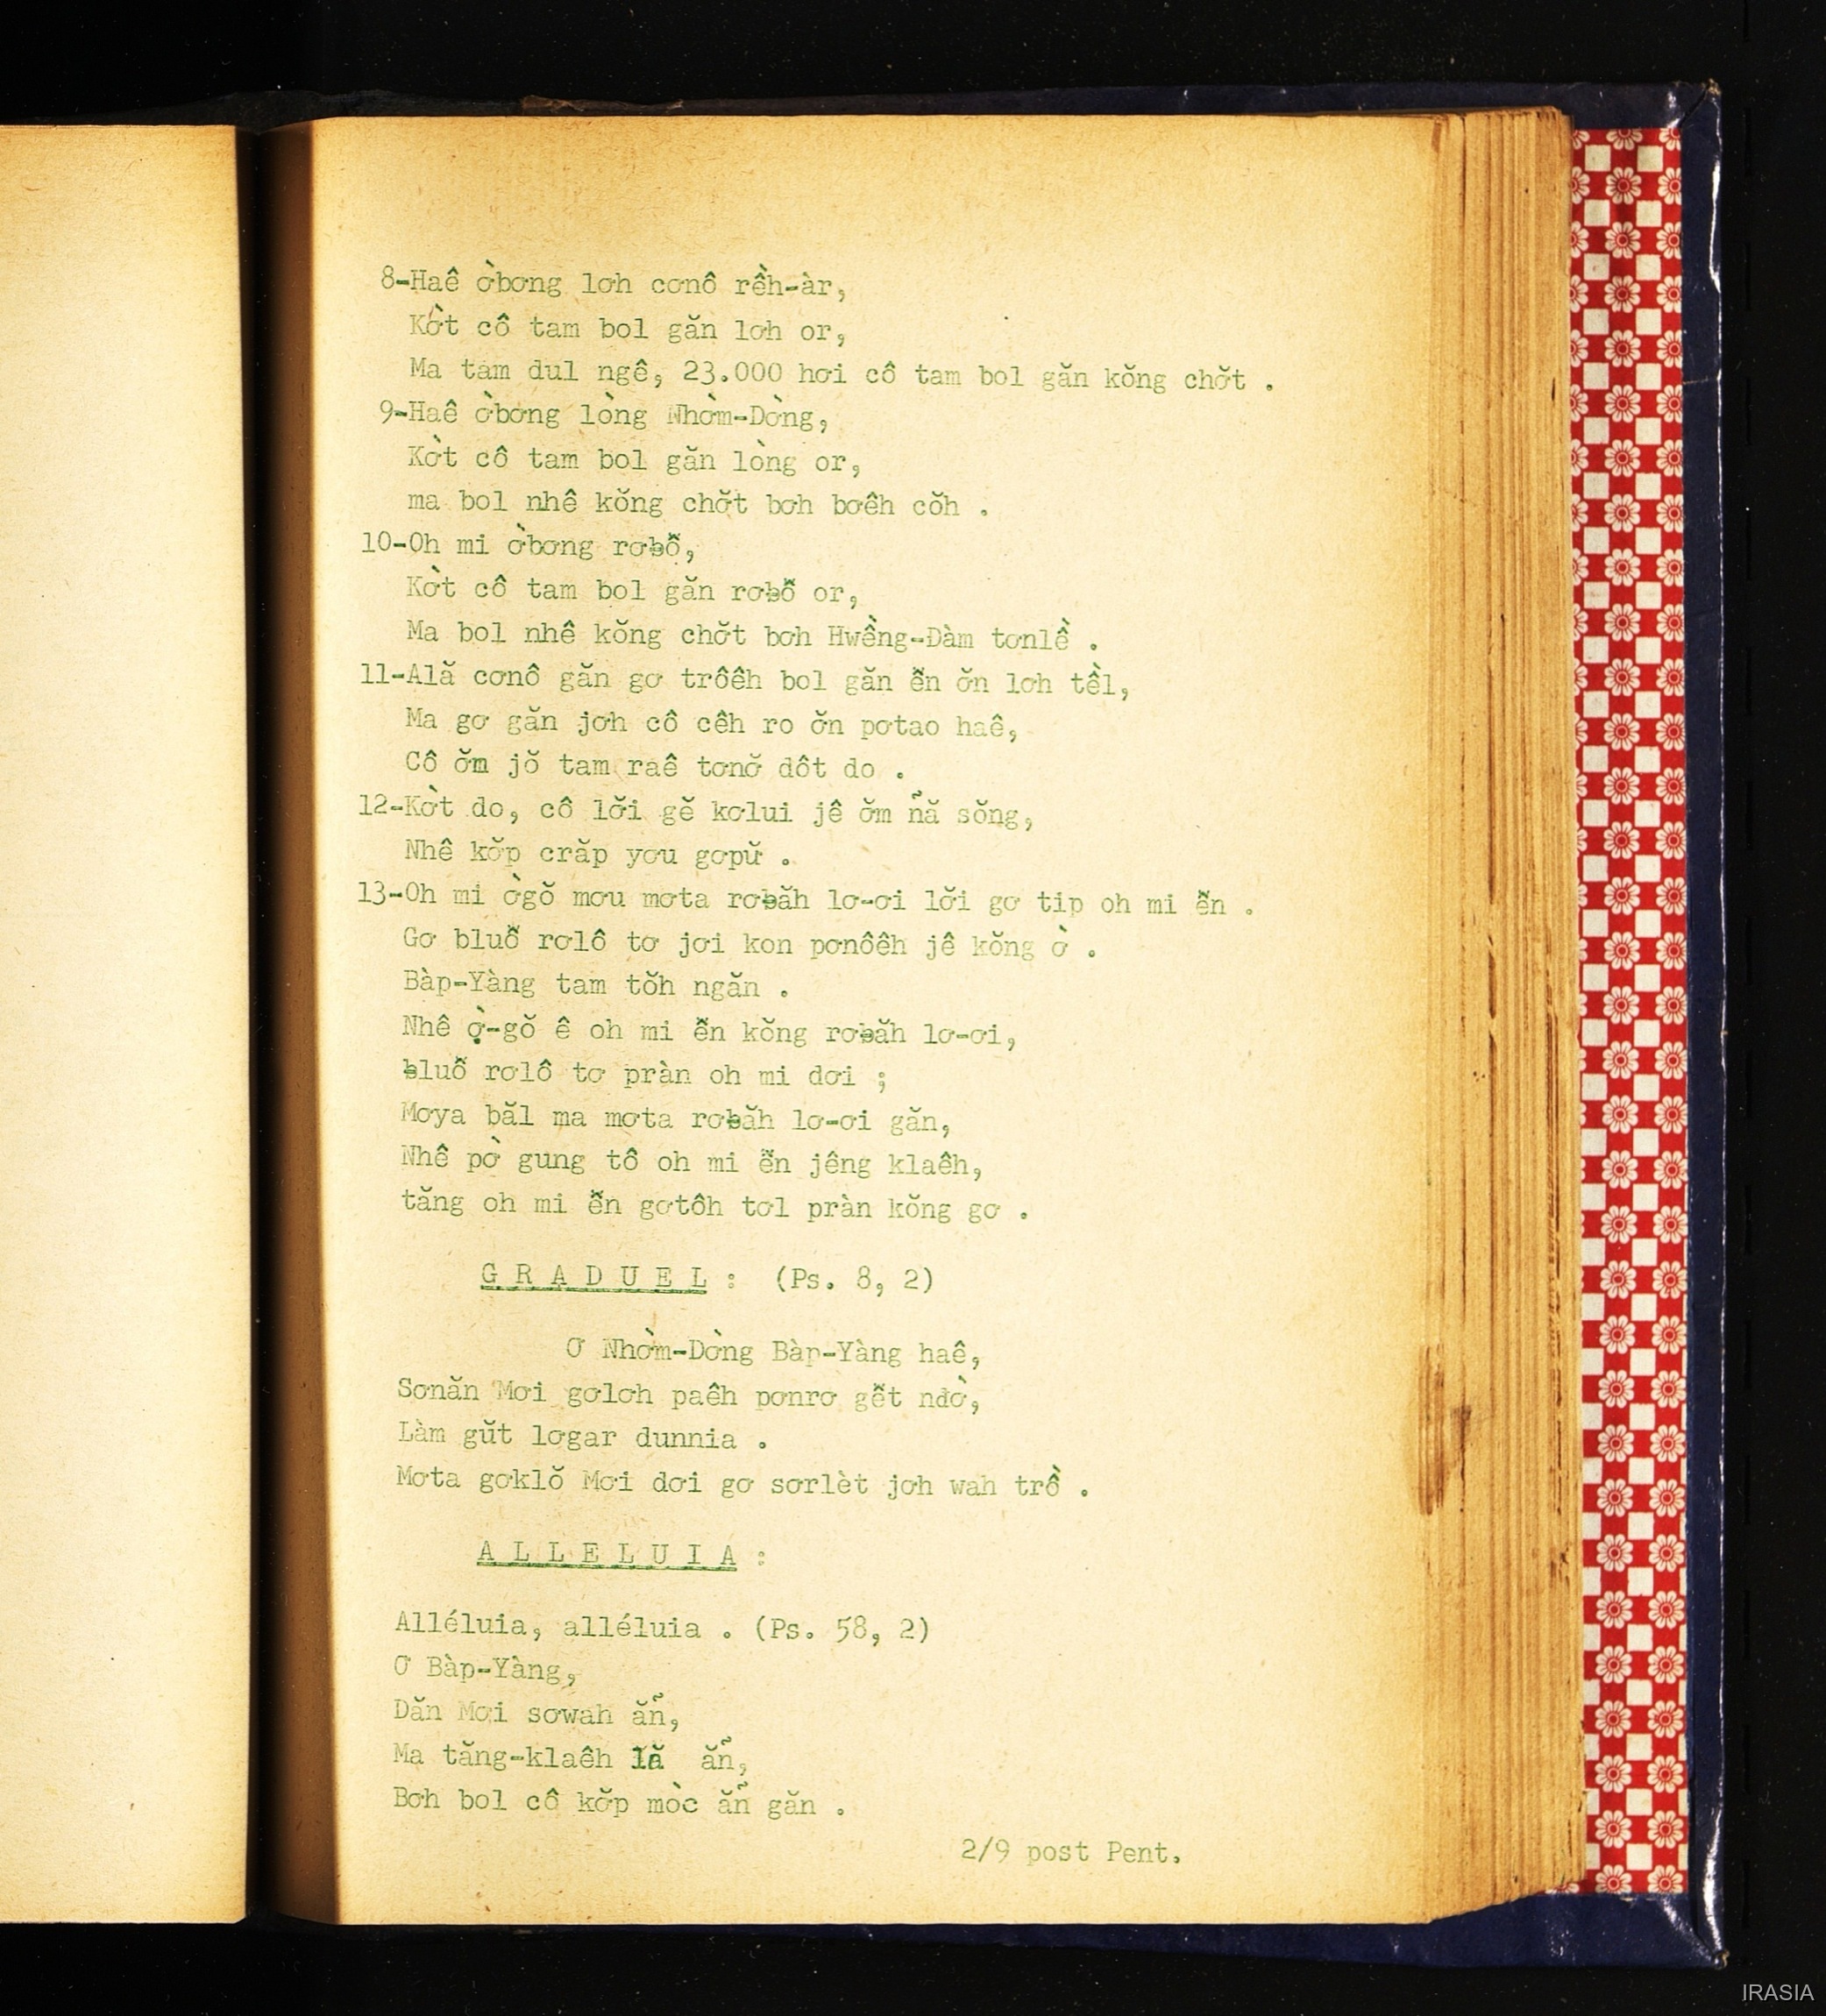 8-Haê ờbơng lơh cơnô rềh-àr,
Kờt cô tam bol găn lơh or,
Ma tam dul ngê, 23.000 hơi cô tam bol găn kŏng chơ̆t .
9-Haê ờbơng lòng Nhờm-Dòng,
Kờt cô tam bol găn lòng or,
ma bol nhê kŏng chơ̆t bơh bơêh cŏh .
10-Oh mi ờbơng rơƀô̆,
Kờt cô tam bol găn rơƀô̆ or,
Ma bol nhê kŏng chơ̆t bơh Hwềng-Đàm tơnlề .
11-Ală cơnô găn gơ trôêh bol găn ê̆n ơ̆n lơh tềl,
Ma gơ găn jơh cô cêh ro ơ̆n pơtao haê,
Cô ơ̆m jŏ tam raê tơnơ̆ dôt do .
12-Kờt do, cô lơ̆i gĕ kơlui jê ơ̆m n̆ă sŏng,
Nhê kơ̆p crăp yơu gơpư̆ .
13-Oh mi ờgŏ mơu mơta rơƀăh lơ-ơi lơ̆i gơ tip oh mi ê̆n .
Gơ bluô̆ rơlô tơ jơi kon pơnôêh jê kŏng ờ .
Bàp-Yàng tam tŏh ngăn .
Nhê ờ-gŏ ê oh mi ê̆n kŏng rơƀăh lơ-ơi,
ƀluô̆ rơlô tơ pràn oh mi dơi ;
Mơya băl ma mơta rơƀăh lơ-ơi găn,
Nhê pờ gung tô oh mi ê̆n jêng klaêh,
tăng oh mi ê̆n gơtôh tơl pràn kŏng gơ .
G R A D U E L : (Ps. 8, 2)
Ơ Nhờm-Dòng Bàp-Yàng haê,
Sơnăn Mơi gơlơh paêh pơnrơ gê̆t nđờ,
Làm gŭt lơgar dunnia .
Mơta gơklŏ Mơi dơi gơ sơrlèt jơh wah trồ .
A L L E L U I A :
Alléluia, alléluia . (Ps. 58, 2)
Ơ Bàp-Yàng,
Dăn Mơi sơwah ăn̆,
Ma tăng-klaêh lă ăn̆,
Bơh bol cô kơ̆p mòc ăn̆ găn .
2/9 post Pent.
IRASIA